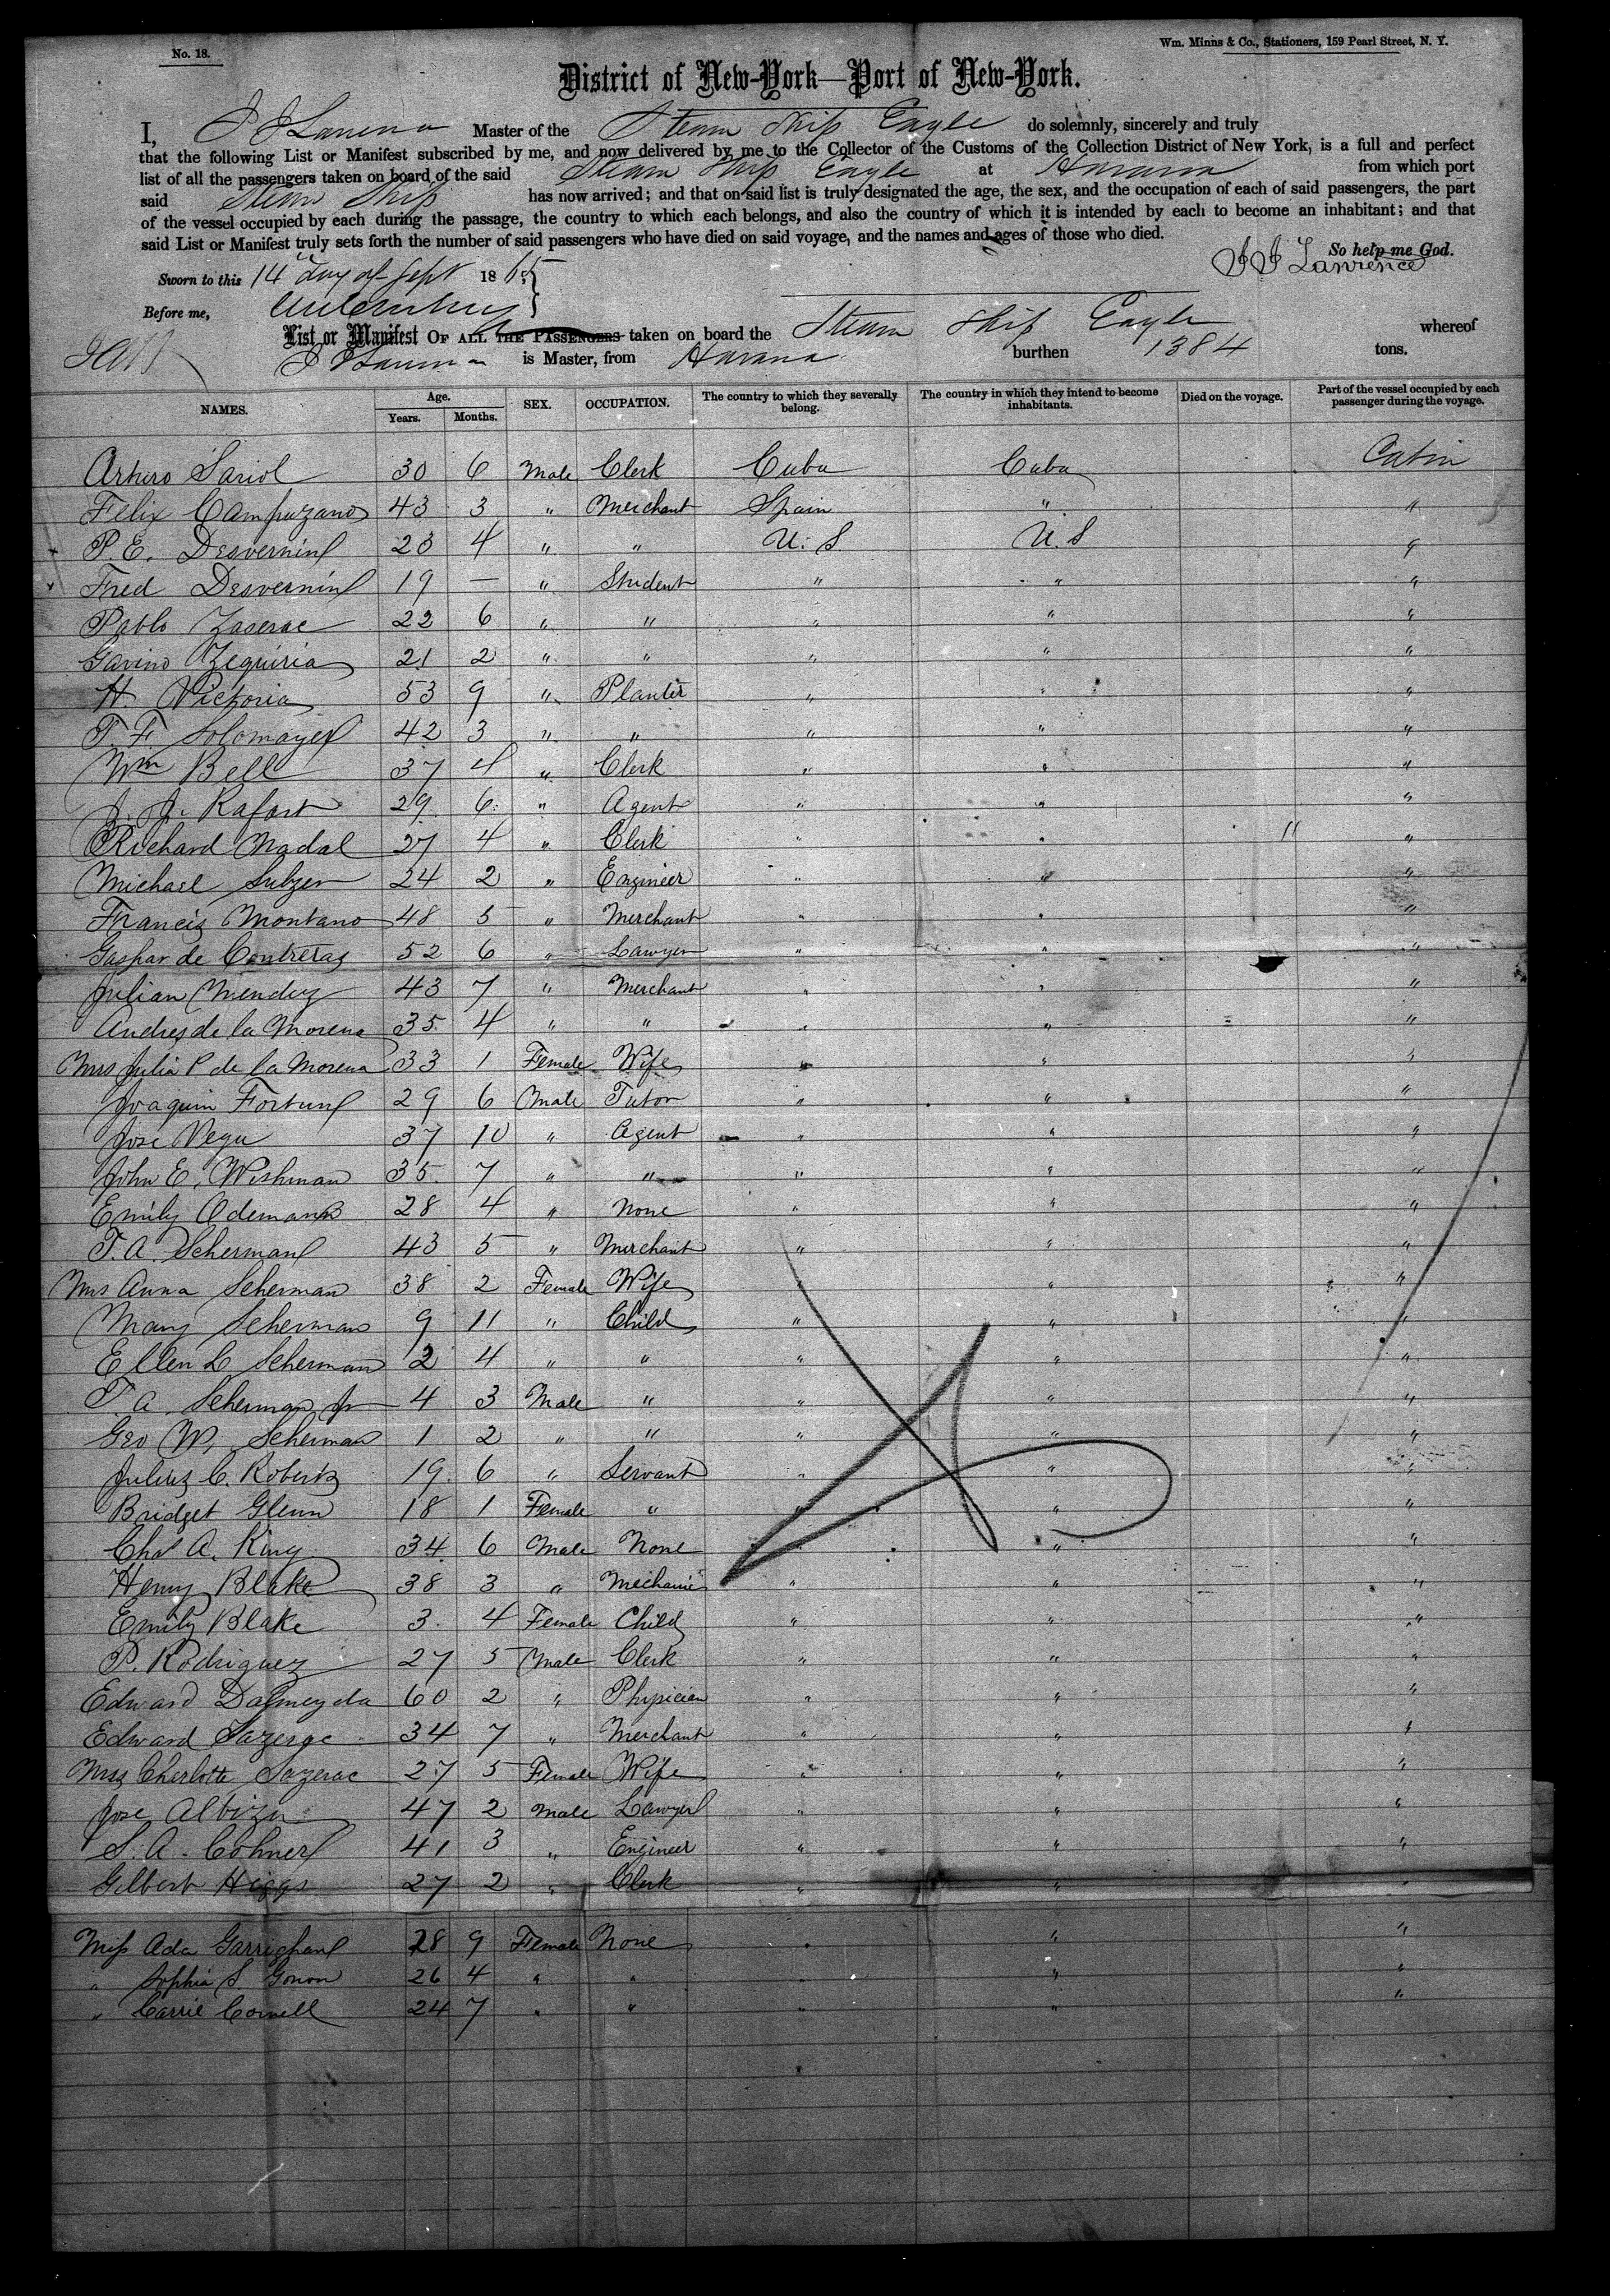 No. 18.
Wm. Minns & Co., Stationers, 159 Pearl Street, N. Y.
District of New-York—Port of New-York.
I, J J Lawrence Master of the Steam Ship Eagle do solemnly, sincerely and truly
that the following List or Manifest subscribed by me, and now delivered by me to the Collector of the Customs of the Collection District of New York, is a full and perfect
list of all the passengers taken on board of the said Steam Ship Eagle at Havana from which port
said Steam Ship has now arrived; and that on said list is truly designated the age, the sex, and the occupation of each of said passengers, the part
of the vessel occupied by each during the passage, the country to which each belongs, and also the country of which it is intended by each to become an inhabitant; and that
said List or Manifest truly sets forth the number of said passengers who have died on said voyage, and the names and ages of those who died.
So help me God.
J J Lawrence
Sworn to this 14 day of Sept 1865
Before me,
List or Manifest OF ALL THE PASSENGERS taken on board the Steam Ship Eagle whereof
J J Lawrence is Master, from Havana burthen 1384 tons.
NAMES. Age. Years. Months. SEX. OCCUPATION. The country to which they severally belong. The country in which they intend to become inhabitants. Died on the voyage. Part of the vessel occupied by each passenger during the voyage.
Arturo Sariol 30 6 Male Clerk Cuba Cuba Cabin
Felix Campuzano 43 3 " Merchant Spain " "
P. E. Desvernine 23 4 " " U. S. U. S "
Fred Desvernine 19 — " Student " " "
Pablo 22 6 " " " " "
Gavino 21 2 " " " " "
H. Victoria 53 9 " Planter " " "
T. F. Solomayer 42 3 " " " " "
Wm Bell 37 4 " Clerk " " "
J. J. Rafart 29 6 " Agent " " "
Richard Nadal 27 4 " Clerk " " " "
Michael 24 2 " Engineer " " "
Francis Montano 48 5 " Merchant " " "
Gaspar de Contreras 52 6 " Lawyer " " "
Julian Mendez 43 7 " Merchant " " "
Andres de la Morena 35 4 " " " " "
Mrs Julia P de la Morena 33 1 Female Wife " " "
Joaquin Fortun 29 6 Male Tutor " " "
Jose Vega 37 10 " Agent " " "
John E. Wishman 35 7 " " " " "
Emily Odemann 28 4 " None " " "
T. A. Scherman 43 5 " Merchant " " "
Mrs Anna Scherman 38 2 Female Wife " " "
Mary Scherman 9 11 " Child " " "
Ellen L Scherman 2 4 " " " " "
T. A. Scherman Jr 4 3 Male " " " "
Geo W. Scherman 1 2 " " " " "
Julius C. Roberts 19 6 " Servant " " "
Bridget Glenn 18 1 Female " " " "
Chas A. King 34 6 Male None " " "
Henry Blake 38 3 " Mechanic " " "
Emily Blake 3 4 Female Child " " "
P. Rodriguez 27 5 Male Clerk " " "
Edward Dalmeyda 60 2 " Physician " " "
Edward Sazerac 34 7 " Merchant " " "
Mrs Cherlotte Sazerac 27 5 Female Wife " " "
Jose Albizu 47 2 Male Lawyer " " "
S. A. Cohner 41 3 " Engineer " " "
Gilbert Higgs 27 2 " Clerk " " "
Miss Ada Garrighan 28 9 Female None " " "
" Sophia S. Gonon 26 4 " " " " "
" Carrie Cornell 24 7 " " " " "